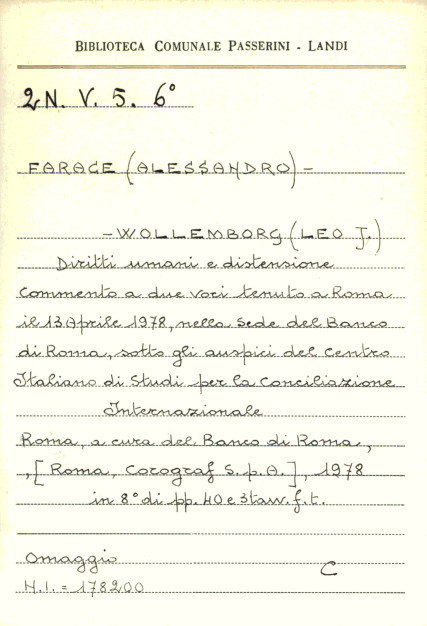 BIBLIOTECA COMUNALE PASSERINI - LANDI
2N. V. 5. 6°
FARACE (ALESSANDRO) -
- WOLLEMBORG (LEO J.)
Diritti umani e distensione
Commento a due voci tenuto a Roma
il 13 Aprile 1978, nella Sede del Banco
di Roma, sotto gli auspici del Centro
Italiano di Studi per la Conciliazione
Internazionale
Roma, a cura del Banco di Roma,
, [Roma, Corograf S.p.A.], 1978
in 8° di pp. 40 e 3 tavv. f. t.
Omaggio
C
N.I. = 178200